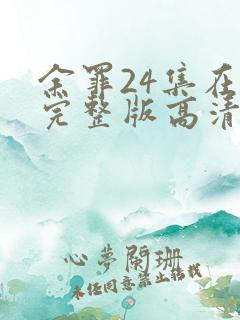 余罪24集在
完整版高清
心夢閑珊
未经同意禁止转载